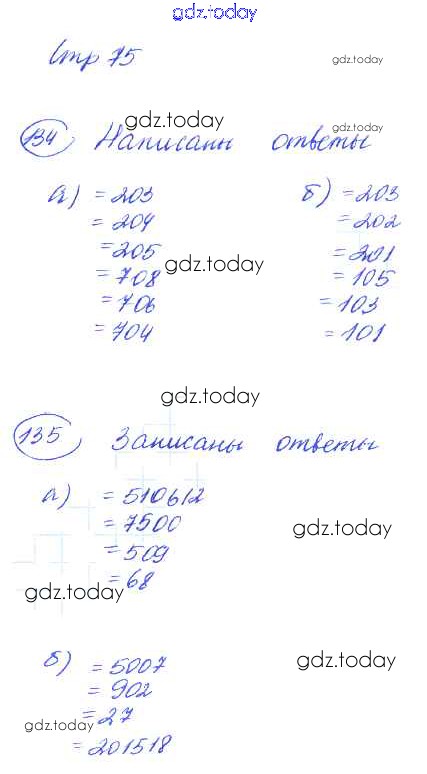 gdz.today
Стр 75
gdz.today
gdz.today
gdz.today
134) Написаны ответы
а) = 203
= 204
= 205
= 708
= 706
= 704
б) = 203
= 202
= 201
= 105
= 103
= 101
gdz.today
gdz.today
135) Записаны ответы
а) = 510612
= 7500
= 509
= 68
gdz.today
gdz.today
б) = 5007
= 902
= 27
= 201518
gdz.today
gdz.today